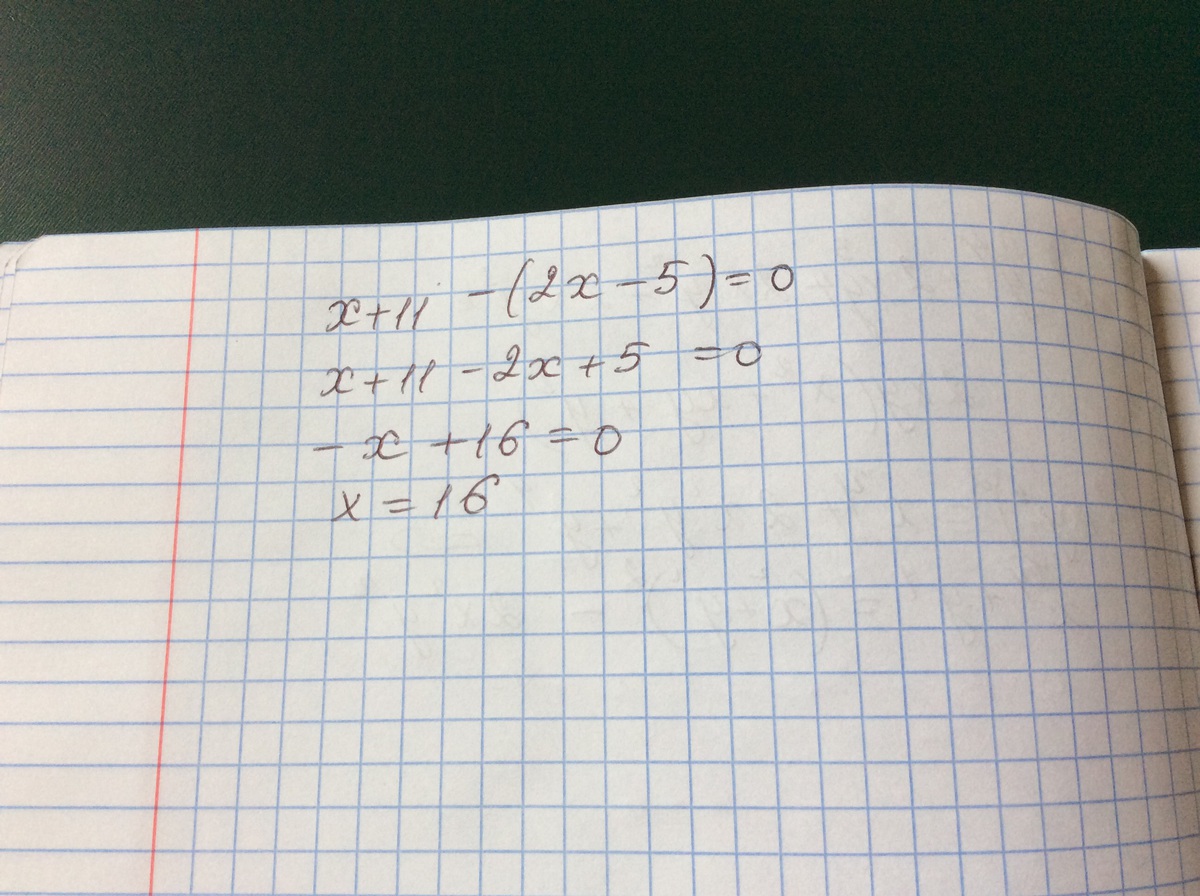 x+11 -(2x-5)=0
x+11 -2x+5 =0
-x +16=0
x=16